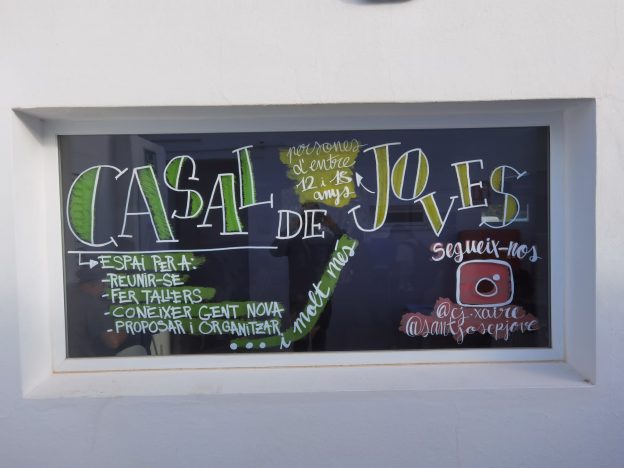 CASAL DE JOVES
persones
d'entre
12 i 18
anys
ESPAI PER A:
- REUNIR-SE
- FER TALLERS
- CONEIXER GENT NOVA
- PROPOSAR I ORGANITZAR
... i molt més
segueix-nos
@cj.xatre
@santjosepjove